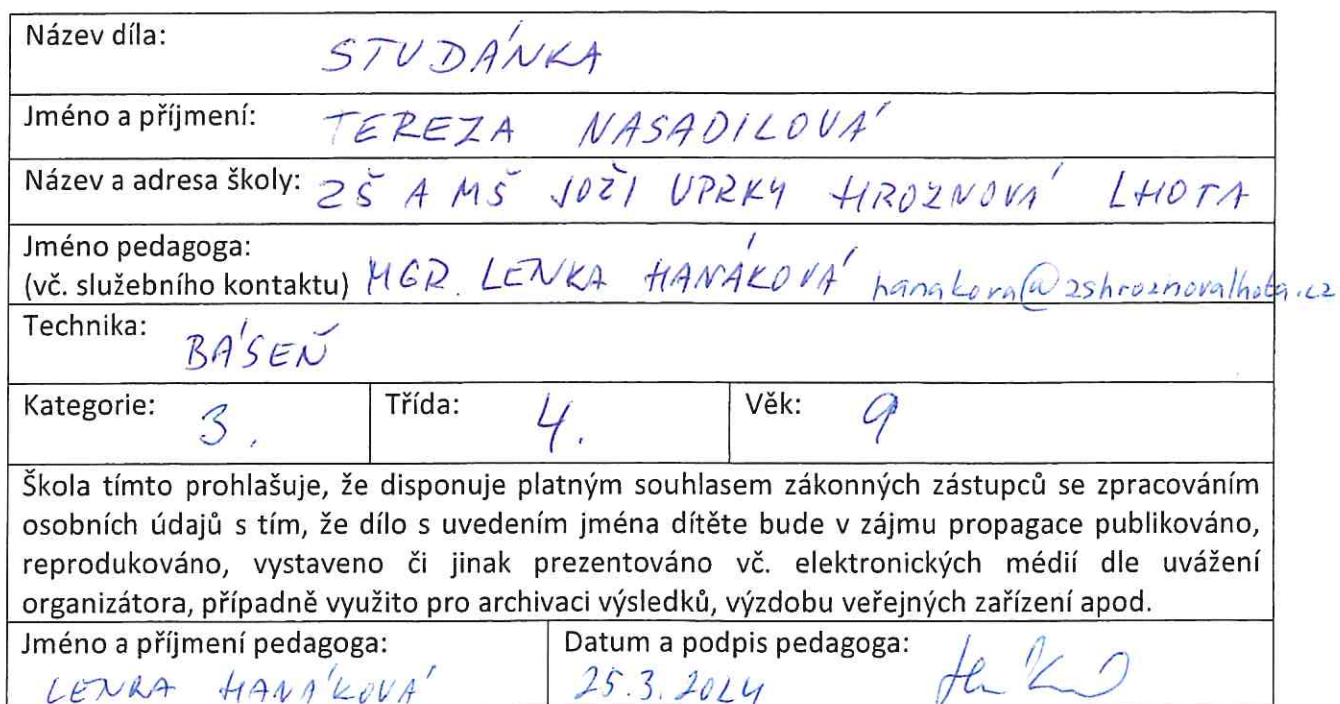 Název díla: STUDÁNKA
Jméno a příjmení: TEREZA NASADILOVÁ
Název a adresa školy: ZŠ A MŠ JOŽI UPRKY HROZNOVÁ LHOTA
Jméno pedagoga:
(vč. služebního kontaktu) MGR. LENKA HANÁKOVÁ hanakova@zshroznovalhota.cz
Technika: BÁSEŇ
Kategorie: 3. Třída: 4. Věk: 9
Škola tímto prohlašuje, že disponuje platným souhlasem zákonných zástupců se zpracováním
osobních údajů s tím, že dílo s uvedením jména dítěte bude v zájmu propagace publikováno,
reprodukováno, vystaveno či jinak prezentováno vč. elektronických médií dle uvážení
organizátora, případně využito pro archivaci výsledků, výzdobu veřejných zařízení apod.
Jméno a příjmení pedagoga: Datum a podpis pedagoga:
LENKA HANÁKOVÁ 25.3.2024